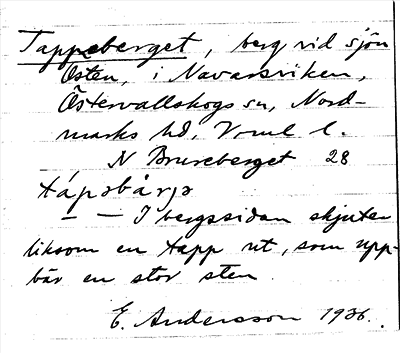 Tappeberget, berg vid sjön
Östen, i Navarsviken,
Östervallskogs sn, Nord-
marks hd, Vrml l.
N Brureberget 28
tápəbärjə
— — I bergssidan skjuter
liksom en tapp ut, som upp-
bär en stor sten.
E. Andersson 1936.